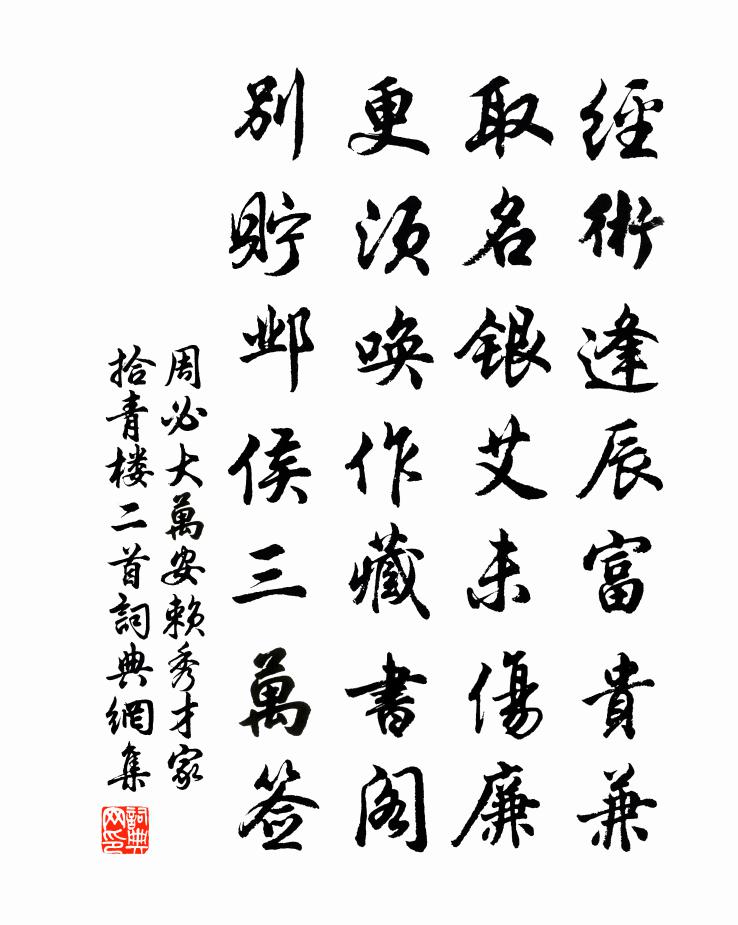 經術逢辰富貴兼
取名銀艾未傷廉
更須唤作藏書阁
别貯邺侯三萬签
周必大萬安赖秀才家
拾青楼二首詞典網集
詞典网印